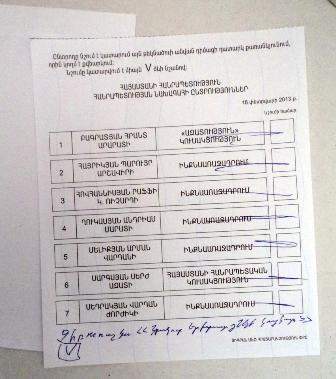 Ընտրողը նշում է կատարում այն թեկնածուի անվան դիմացի դատարկ քառանկյունում,
որին կողմ է քվեարկում:
Նշումը կատարվում է միայն V ձևի նշանով:
ՀԱՅԱՍՏԱՆԻ ՀԱՆՐԱՊԵՏՈՒԹՅՈՒՆ
ՀԱՆՐԱՊԵՏՈՒԹՅԱՆ ՆԱԽԱԳԱՀԻ ԸՆՏՐՈՒԹՅՈՒՆՆԵՐ
18 փետրվարի 2013 թ.
Նշումի համար
1 ԲԱԳՐԱՏՅԱՆ ՀՐԱՆՏ ԱՐԱՐԱՏԻ «ԱԶԱՏՈՒԹՅՈՒՆ» ԿՈՒՍԱԿՑՈՒԹՅՈՒՆ
2 ՀԱՅՐԻԿՅԱՆ ՊԱՐՈՒՅՐ ԱՐՇԱՎԻՐԻ ԻՆՔՆԱԱՌԱՋԱԴՐՈՒՄ
3 ՀՈՎՀԱՆՆԻՍՅԱՆ ՐԱՖՖԻ Կ. ՌԻՉԱՐԴԻ ԻՆՔՆԱԱՌԱՋԱԴՐՈՒՄ
4 ՂՈՒԿԱՍՅԱՆ ԱՆԴՐԻԱՍ ՄԱՐԱՏԻ ԻՆՔՆԱԱՌԱՋԱԴՐՈՒՄ
5 ՄԵԼԻՔՅԱՆ ԱՐՄԱՆ ՎԱՐԴԱՆԻ ԻՆՔՆԱԱՌԱՋԱԴՐՈՒՄ
6 ՍԱՐԳՍՅԱՆ ՍԵՐԺ ԱԶԱՏԻ ՀԱՅԱՍՏԱՆԻ ՀԱՆՐԱՊԵՏԱԿԱՆ ԿՈՒՍԱԿՑՈՒԹՅՈՒՆ
7 ՍԵԴՐԱԿՅԱՆ ՎԱՐԴԱՆ ԺՈՐԺԻԿԻ ԻՆՔՆԱԱՌԱՋԱԴՐՈՒՄ
V